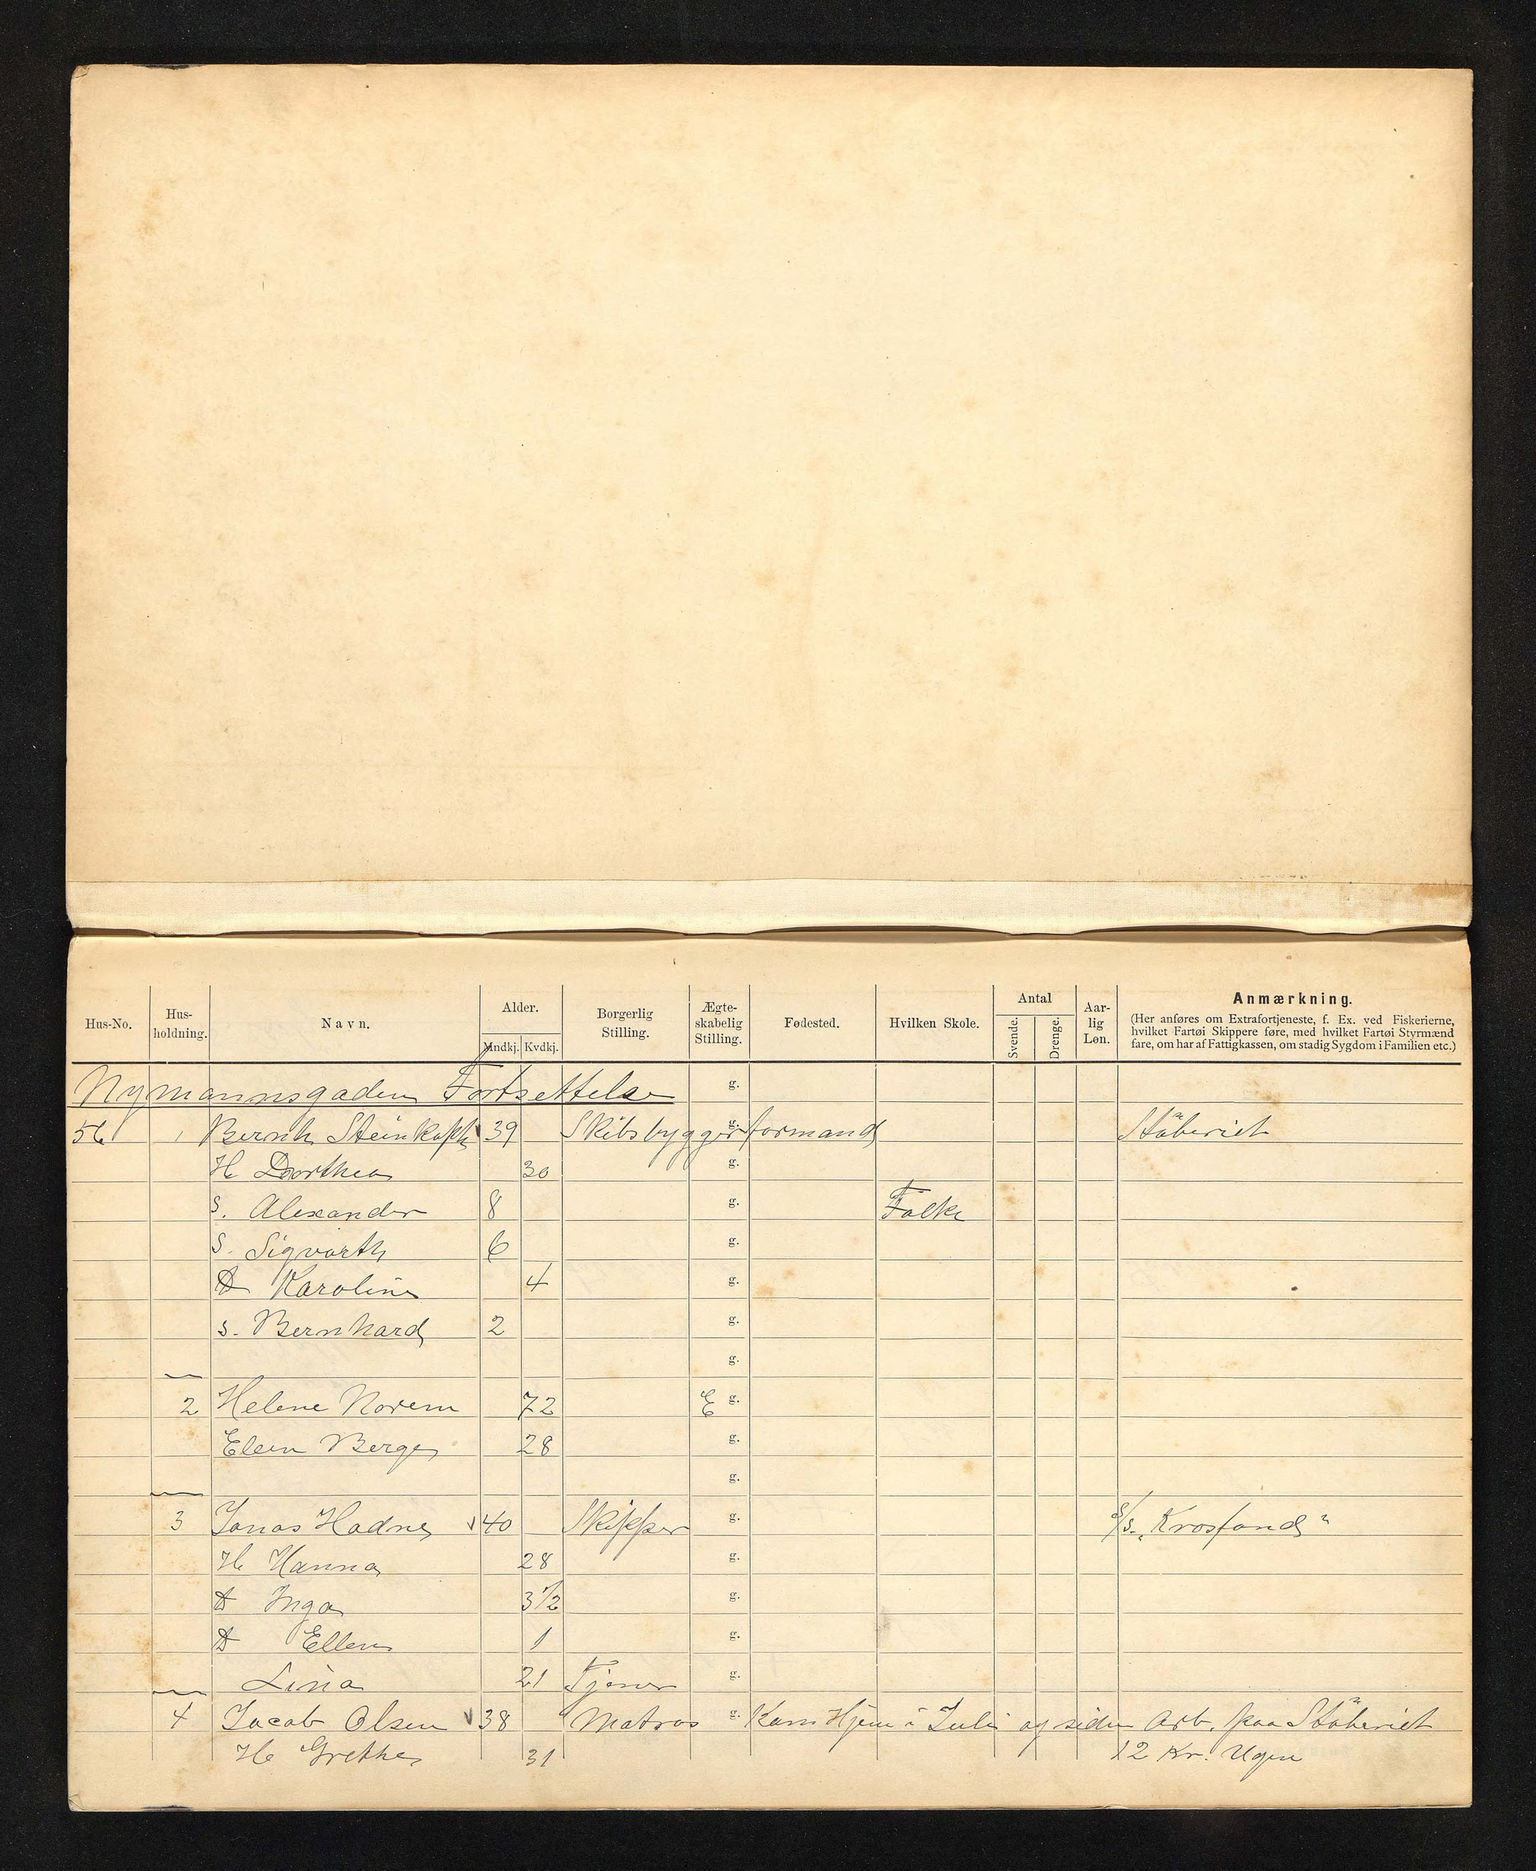 Hus-No. Hus-holdning. Navn. Alder. Mndkj. Kvdkj. Borgerlig Stilling. Ægte-skabelig Stilling. Fødested. Hvilken Skole. Antal Svende. Drenge. Aar-lig Løn. Anmærkning.
(Her anføres om Extrafortjeneste, f. Ex. ved Fiskerierne,
hvilket Fartøi Skippere føre, med hvilket Fartøi Styrmænd
fare, om har af Fattigkassen, om stadig Sygdom i Familien etc.)
Nymannsgaden Fortsettelse g.
56 1 Bernh Steinkopf 39 Skibsbyggerformand g. Støberiet
H Dorthea 30 g.
S. Alexander 8 g. Folke
S. Sigvarth 6 g.
D Karoline 4 g.
S. Bernhard 2 g.
g.
2 Helene Norem 72 E g.
Elen Berge 28 g.
g.
3 Jonas Hadne 40 Skipper g. S/S. "Krosfond"
H Hanna 28 g.
D Inga 3 1/2 g.
D Ellen 1 g.
Lina 21 Tjener g.
4 Jacob Olsen 38 Matros g. Kom Hjem i Juli og siden Arb. paa Støberiet
H Grethe 31 12 Kr. Ugen